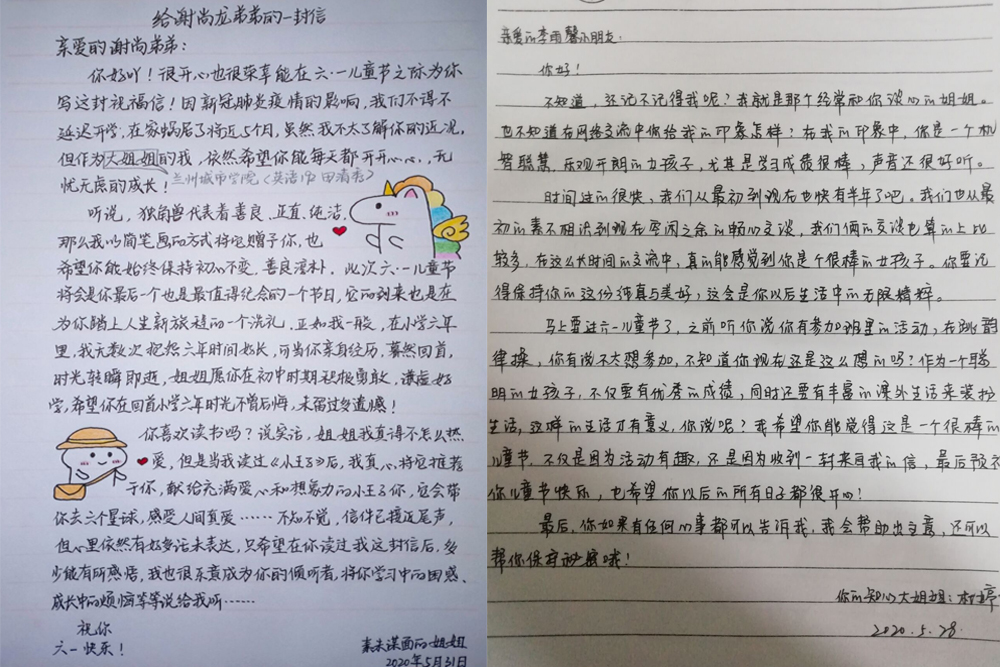 给谢尚龙弟弟的一封信
亲爱的谢尚弟弟：
你好吖！很开心也很荣幸能在六·一儿童节之际为你
写这封祝福信！因新冠肺炎疫情的影响，我们不得不
延迟开学，在家蜗居了将近5个月，虽然我不太了解你的近况，
但作为大姐姐的我，依然希望你能每天都开开心心，无
忧无虑的成长！
兰州城市学院（英语177 田清秀）
听说，独角兽代表着善良、正直、纯洁，
那么我以简笔画的方式将它赠予你，也
希望你能始终保持初心不变，善良淳朴，此次六·一儿童节
将会是你最后一个也是最值得纪念的一个节日，它的到来也是在
为你踏上人生新旅程的一个洗礼，正如我一般，在小学六年
里，我无数次抱怨六年时间好长，可当你亲身经历，蓦然回首，
时光转瞬即逝，姐姐愿你在初中时期积极勇敢，谦虚好
学，希望你在回首小学六年时光不曾后悔，未留过多遗憾！
你喜欢读书吗？说实话，姐姐我真得不怎么热
爱，但是当我读过《小王子》后，我真心将它推荐
于你，献给充满爱心和想象力的小王子你，它会带
你去六个星球，感受人间真爱……不知不觉，信件已接近尾声，
但心里依然有好多话未表达，只希望在你读过我这封信后，多
少能有所感悟，我也很乐意成为你的倾听者，将你学习中的困惑、
成长中的烦恼等等说给我听……
祝你
六一快乐！
素未谋面的姐姐
2020年5月31日
亲爱的李雨馨小朋友：
你好！
不知道，还记不记得我呢？我就是那个经常和你谈心的姐姐。
也不知道在网络交流中你给我的印象怎样？在我的印象中，你是一个机
智聪慧，乐观开朗的女孩子，尤其是学习成绩很棒，声音还很好听。
时间过的很快，我们从最初到现在也快有半年了吧。我们也从最
初的素不相识到现在空闲之余的畅心交谈，我们俩的交谈也算的上比
较多，在这么长时间的交流中，真的能感觉到你是个很棒的女孩子。你要记
得保持你的这份纯真与美好，这会是你以后生活中的无限精粹。
马上要过六一儿童节了，之前听你说你有参加班里的活动，在跳韵
律操，你有说不大想参加，不知道你现在还是这么想的吗？作为一个聪
明的女孩子，不仅要有优秀的成绩，同时还要有丰富的课外生活来装扮
生活，这样的生活才有意义，你说呢？我希望你能觉得这是一个很棒的
儿童节，不仅是因为活动有趣，还是因为收到一封来自我的信，最后预祝
你儿童节快乐，也希望你以后的所有日子都很开心！
最后，你如果有任何心事都可以告诉我，我会帮助出主意，还可以
帮你保存秘密哦！
你的知心大姐姐：
2020.5.28.